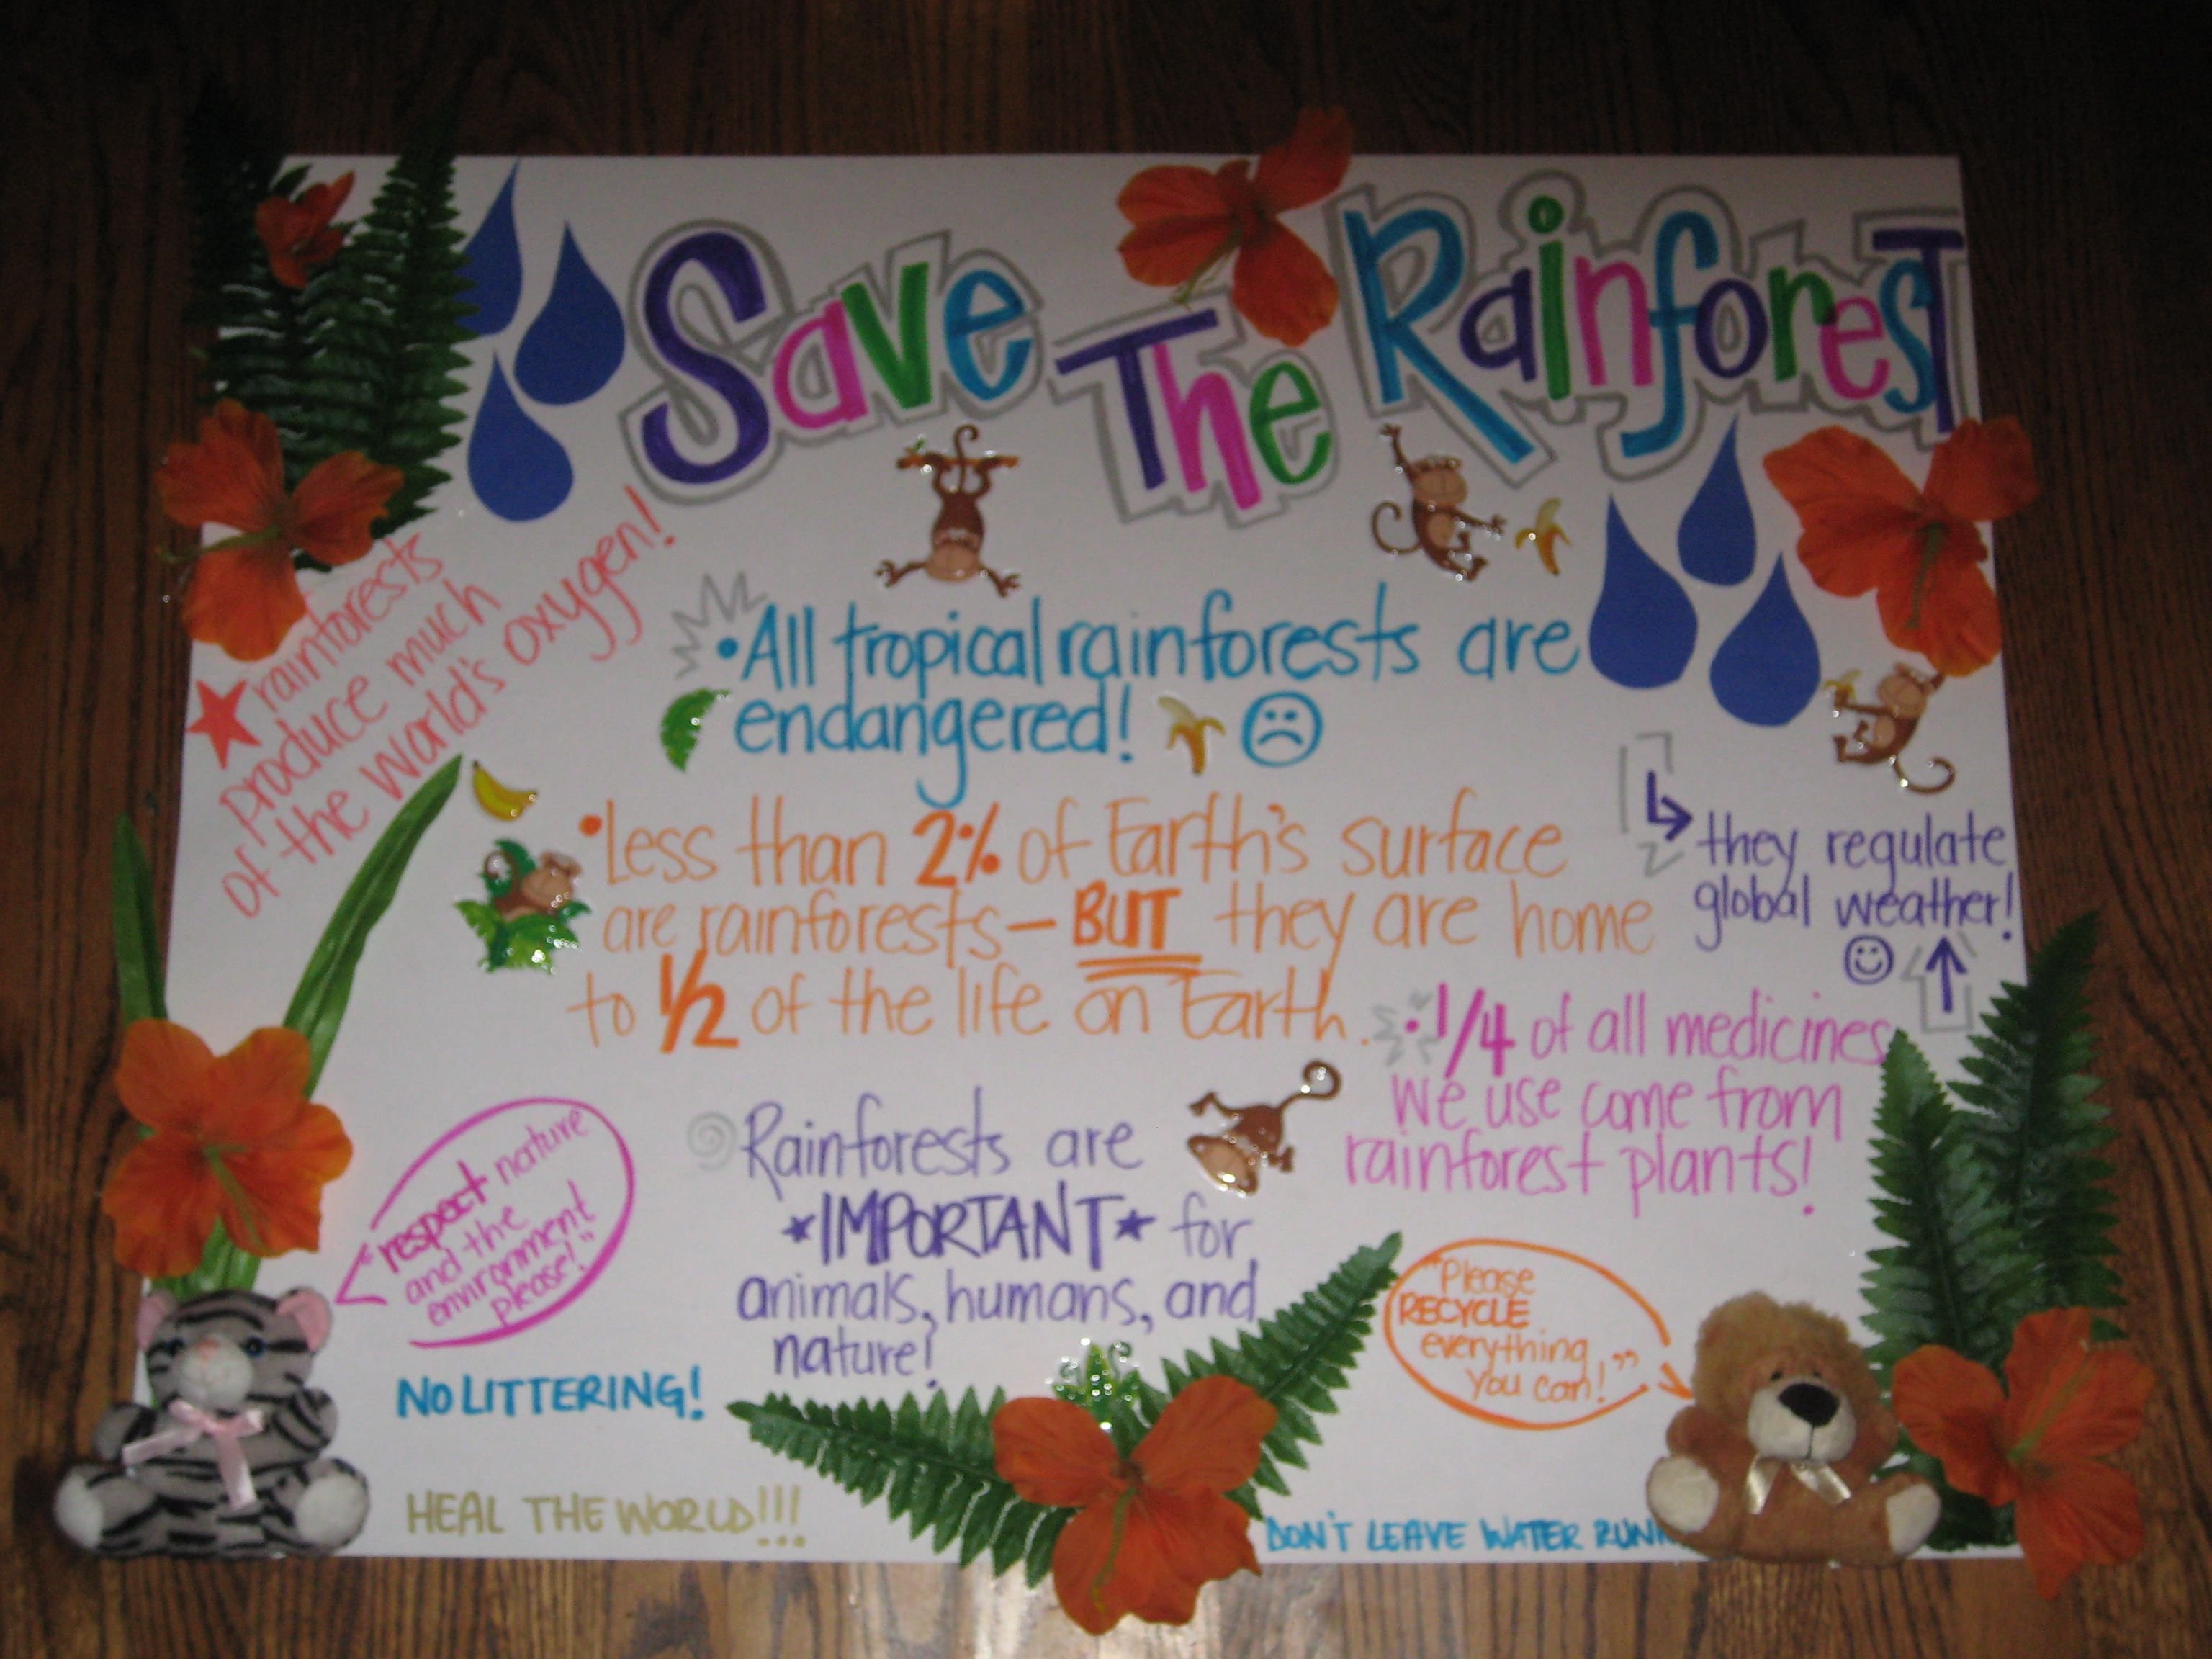 Save The Rainforest
rainforests
produce much
of the world's oxygen!
•All tropical rainforests are
endangered!
•Less than 2% of Earth's surface
are rainforests— BUT they are home
to 1/2 of the life on Earth.
they regulate
global weather!
•1/4 of all medicines
we use come from
rainforest plants!
"respect nature
and the
environment
please!"
Rainforests are
IMPORTANT for
animals, humans, and
nature!
"Please
RECYCLE
everything
you can!"
NO LITTERING!
HEAL THE WORLD!!!
DON'T LEAVE WATER